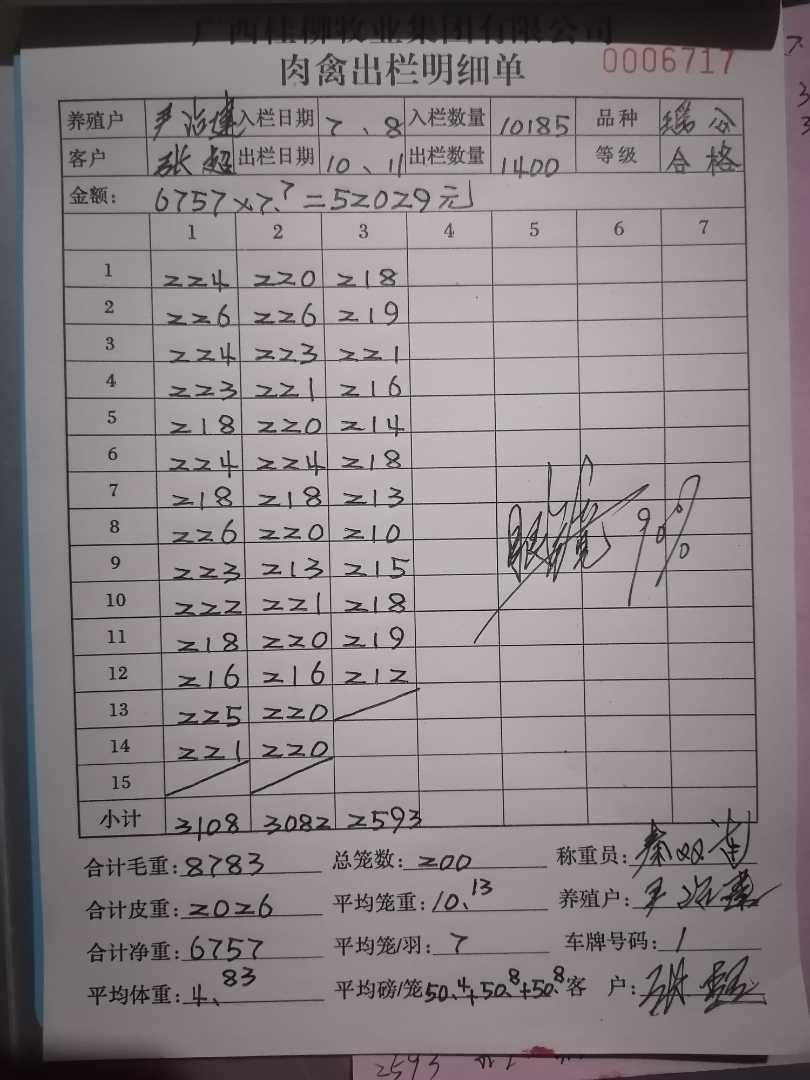 广西桂柳牧业集团有限公司
肉禽出栏明细单 0006717
养殖户 入栏日期 7、8 入栏数量 10185 品种
客户 张超 出栏日期 10、11 出栏数量 1400 等级 合格
金额: 6757×7.7=52029元
1 2 3 4 5 6 7
1 224 220 218
2 226 226 219
3 224 223 221
4 223 221 216
5 218 220 214
6 224 224 218
7 218 218 213
8 226 220 210
9 223 213 215
10 222 221 218
11 218 220 219
12 216 216 212
13 225 220
14 221 220
15
小计 3108 3082 2593
合计毛重: 8783 总笼数: 200 称重员:
合计皮重: 2026 平均笼重: 10.13 养殖户:
合计净重: 6757 平均笼/羽: 7 车牌号码: /
平均体重: 4.83 平均磅/笼 50.4+50.8+50.8 客户: 张超
2593